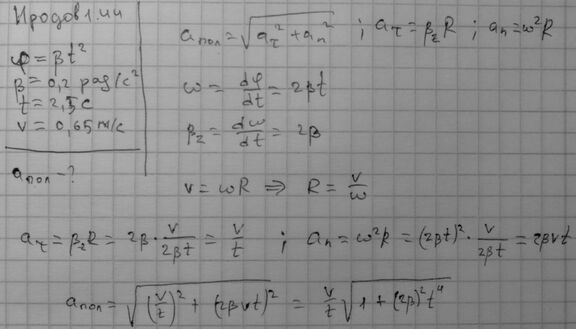 Иродов 1.44
φ = βt²
β = 0,2 рад/с²
t = 2,5 с
v = 0,65 м/с
aпол - ?
aпол = √(aτ² + an²) ; aτ = β₂R ; an = ω²R
ω = dφ/dt = 2βt
β₂ = dω/dt = 2β
v = ωR ⇒ R = v/ω
aτ = β₂R = 2β · v/2βt = v/t ; an = ω²R = (2βt)² · v/2βt = 2βvt
aпол = √((v/t)² + (2βvt)²) = v/t √(1 + (2β)²t⁴)